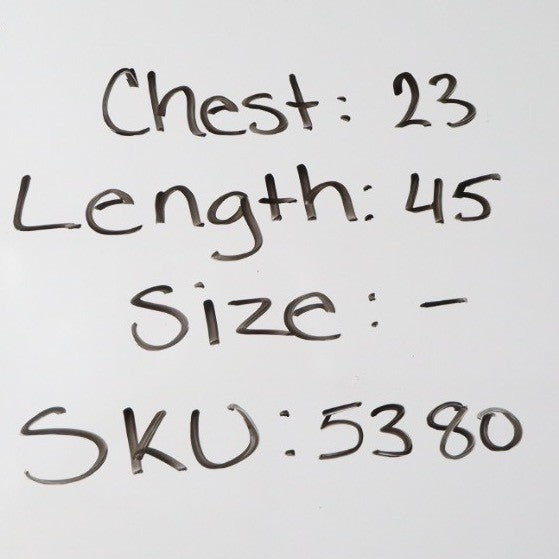 Chest: 23
Length: 45
Size: -
SKU: 5380